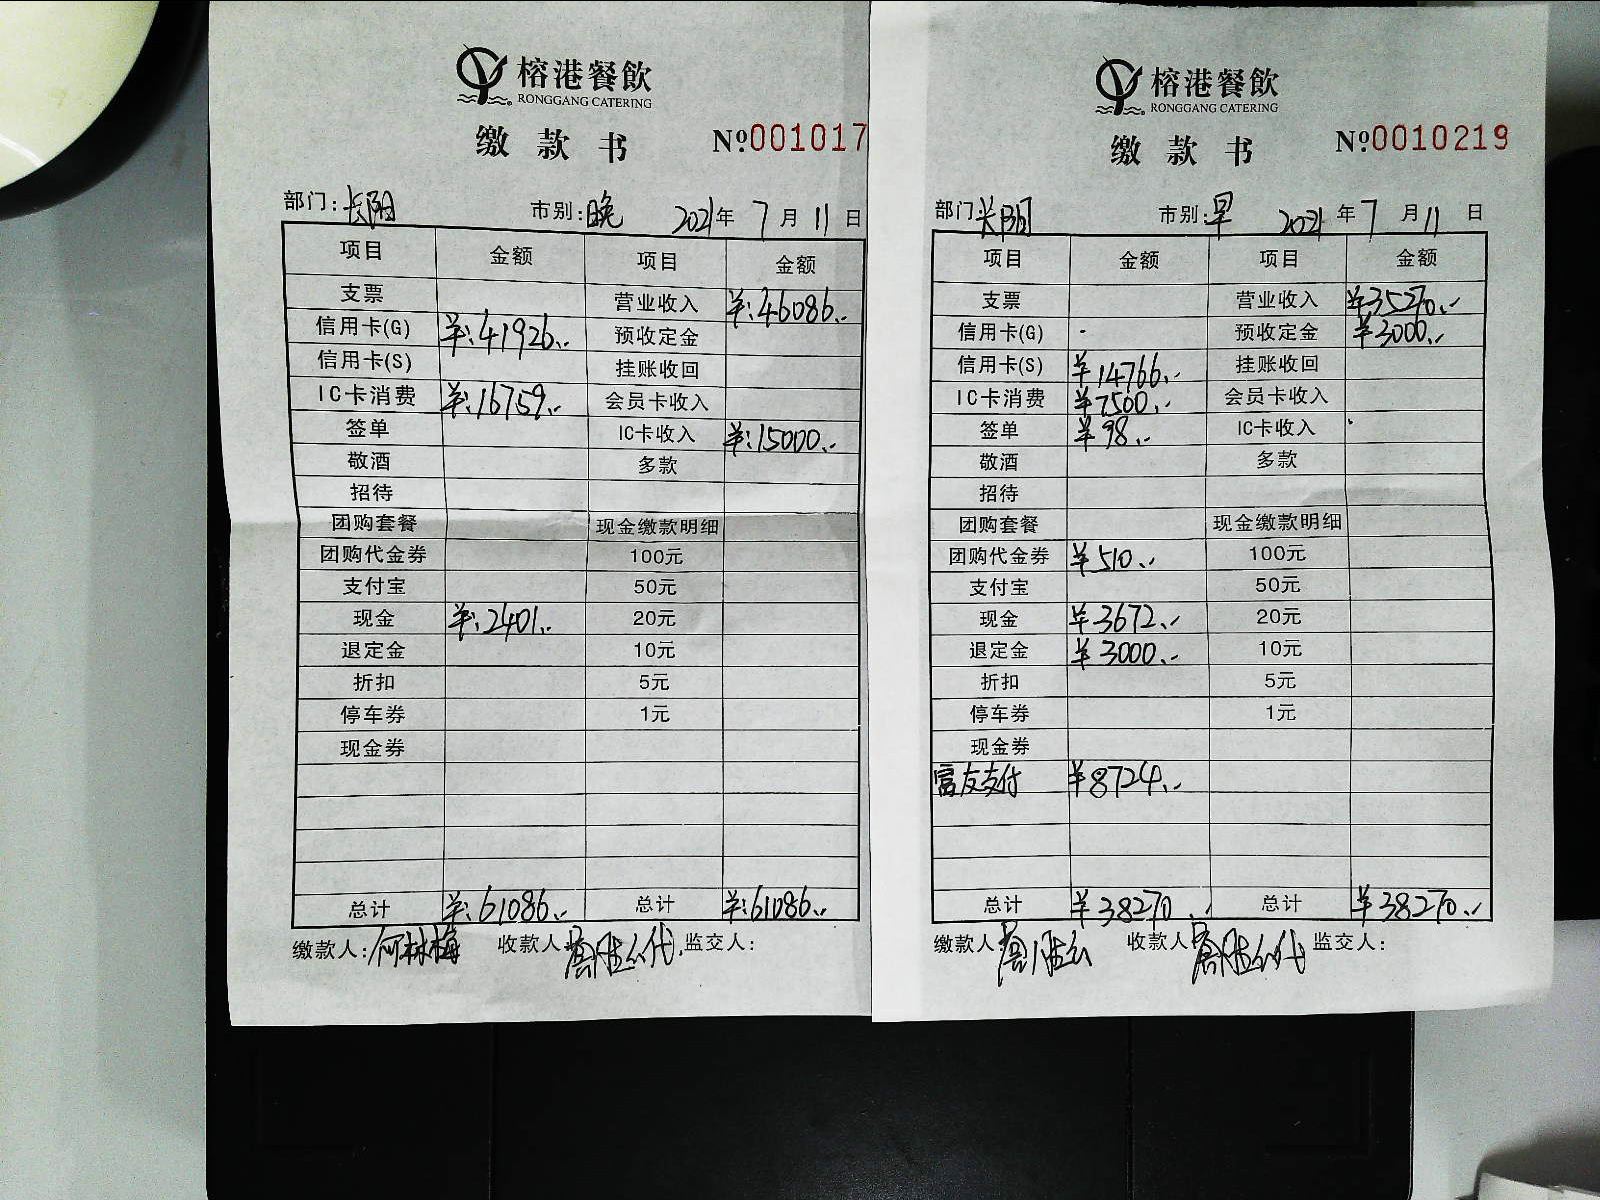 榕港餐飲
RONGGANG CATERING
缴款书 №001017
部门:长阳 市别:晚 2021年7月11日
项目 金额 项目 金额
支票 营业收入 ¥:46086.
信用卡(G) ¥:41926. 预收定金
信用卡(S) 挂账收回
IC卡消费 ¥:16759. 会员卡收入
签单 IC卡收入 ¥:15000.
敬酒 多款
招待
团购套餐 现金缴款明细
团购代金券 100元
支付宝 50元
现金 ¥:2401. 20元
退定金 10元
折扣 5元
停车券 1元
现金券
总计 ¥:61086. 总计 ¥:61086.
缴款人:何林梅 收款人 代 监交人:
榕港餐飲
RONGGANG CATERING
缴款书 №0010219
部门 长阳 市别:早 2021年7月11日
项目 金额 项目 金额
支票 营业收入 ¥35270.
信用卡(G) 预收定金 ¥3000.
信用卡(S) ¥14766. 挂账收回
IC卡消费 ¥7500. 会员卡收入
签单 ¥98. IC卡收入
敬酒 多款
招待
团购套餐 现金缴款明细
团购代金券 ¥510. 100元
支付宝 50元
现金 ¥3672. 20元
退定金 ¥3000. 10元
折扣 5元
停车券 1元
现金券
富友支付 ¥8724.
总计 ¥38270. 总计 ¥38270.
缴款人 收款人 代 监交人: